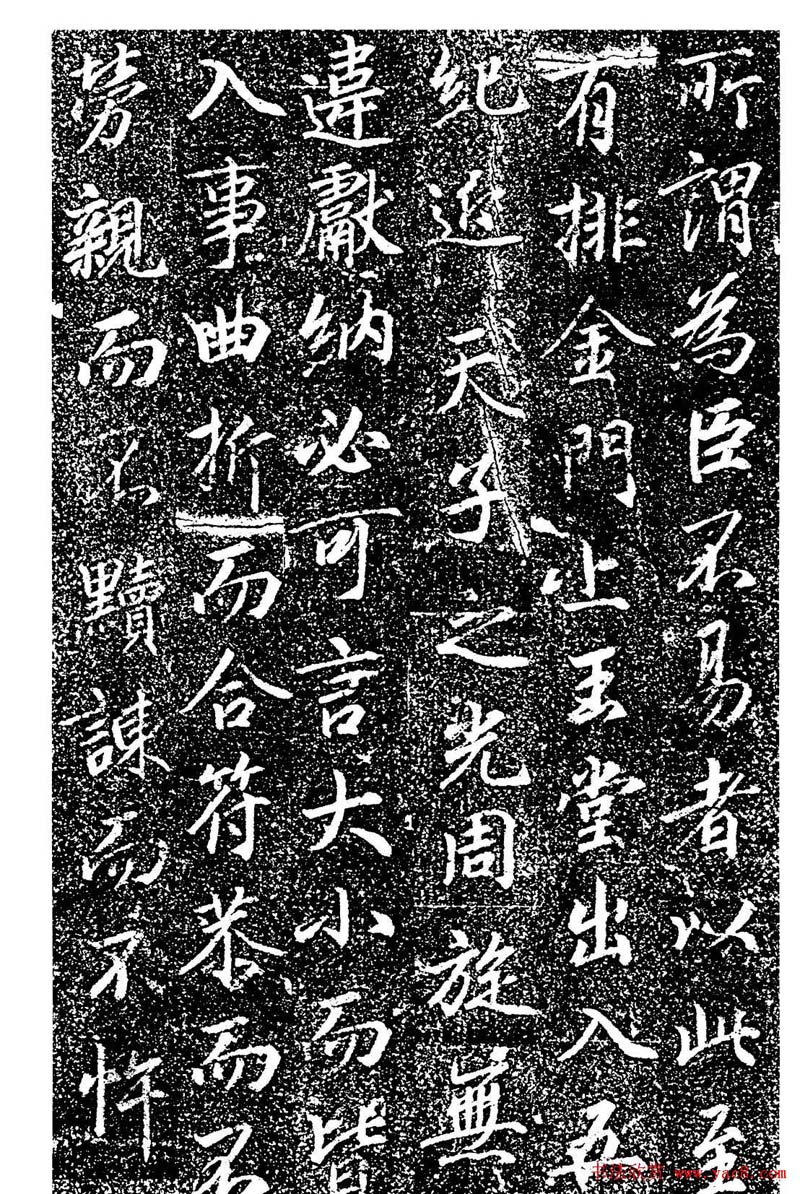 所謂為臣不易者以此至
有排金門上玉堂出入五
紀近天子之光周旋無
違獻納必可言大小而皆
入事曲折而合符恭而
勞親而不黷諫而不忤
书法欣赏 www.yac8.com